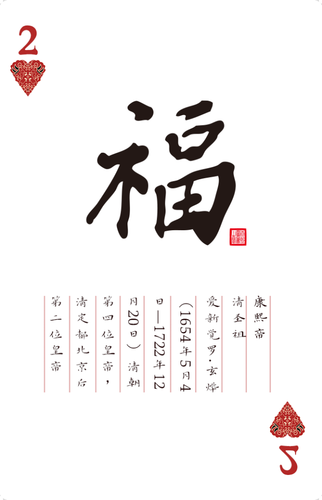 2
福
康熙帝
清圣祖
爱新觉罗·玄烨
(1654年5月4
日—1722年12
月20日)清朝
第四位皇帝，
清定都北京后
第二位皇帝
2